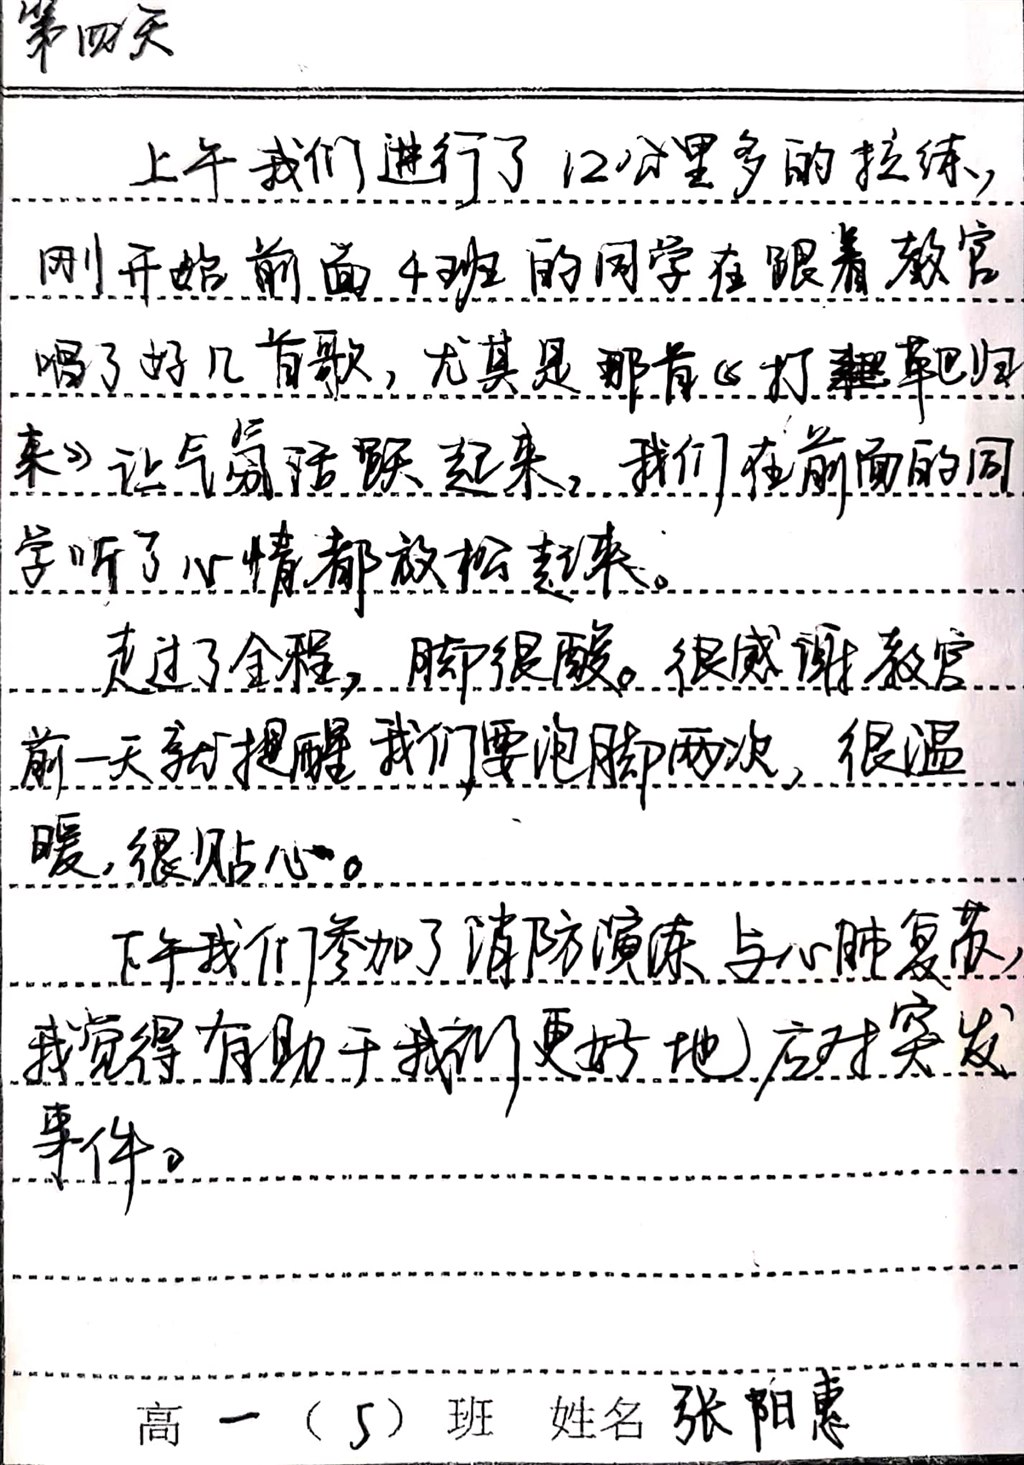 第四天
上午我们进行了12公里多的拉练,
刚开始前面4班的同学在跟着教官
唱了好几首歌,尤其是那首《打靶归
来》让气氛活跃起来,我们在前面的同
学听了心情都放松起来。
走过了全程,脚很酸。很感谢教官
前一天就提醒我们要泡脚两次,很温
暖,很贴心。
下午我们参加了消防演练与心肺复苏,
我觉得有助于我们更好地应对突发
事件。
高一(5)班 姓名 张阳惠